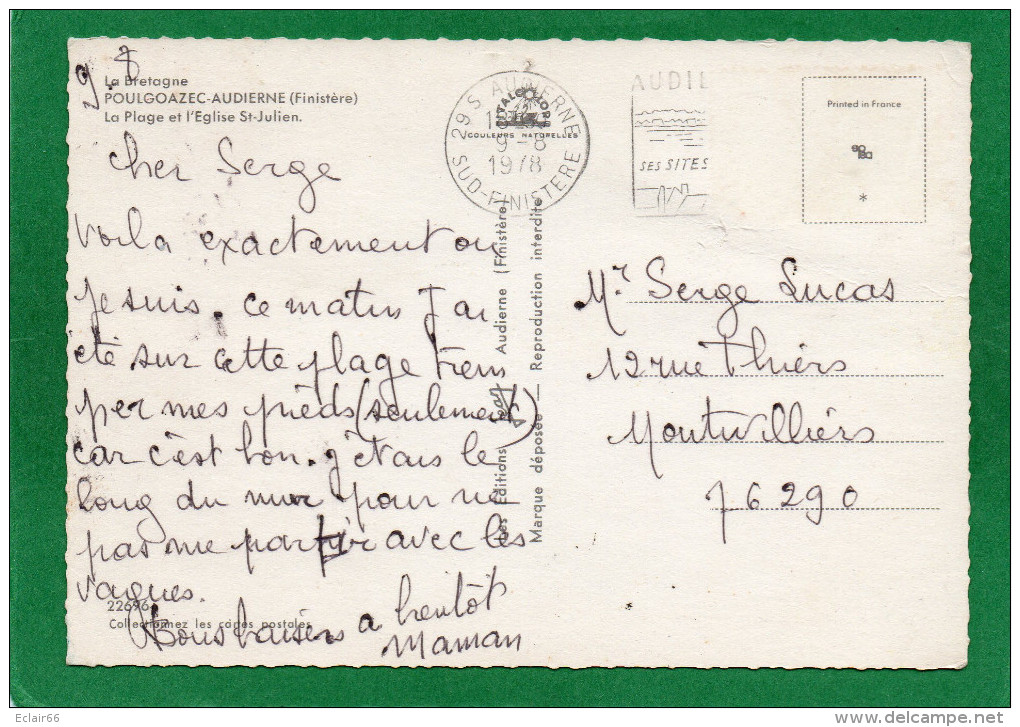 9.8
La Bretagne
POULGOAZEC-AUDIERNE (Finistère)
La Plage et l'Eglise St-Julien.
cher Serge
Voila exactement ou
je suis. ce matin J'ai
été sur cette plage trem
per mes pieds (seulement)
car c'est bon. j'étais le
long du mur pour ne
pas me partir avec les
vagues.
Bons baisers a bientôt
maman
22696
Collectionnez les cartes postales
29 S AUDIERNE
9-8
1978
SUD-FINISTERE
COULEURS NATURELLES
AUDIE
SES SITES
Printed in France
Les Editions Jean Audierne (Finistère)
Marque déposée — Reproduction interdite
Mr Serge Lucas
12 rue Thiers
Montivilliers
76290
Eclair66
www.delcampe.net